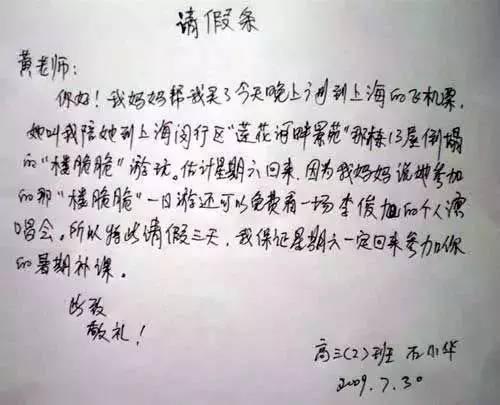 请假条
黄老师：
你好！我妈妈帮我买了今天晚上飞到上海的飞机票，
她叫我陪她到上海闵行区“莲花河畔景苑”那栋13层倒塌
的“楼脆脆”游玩。估计星期六回来，因为我妈妈说她参加
的那“楼脆脆”一日游还可以免费看一场李俊旭的个人演
唱会。所以特此请假三天，我保证星期六一定回来参加你
的暑期补课。
此致
敬礼！
高三（2）班 石小华
2009.7.30